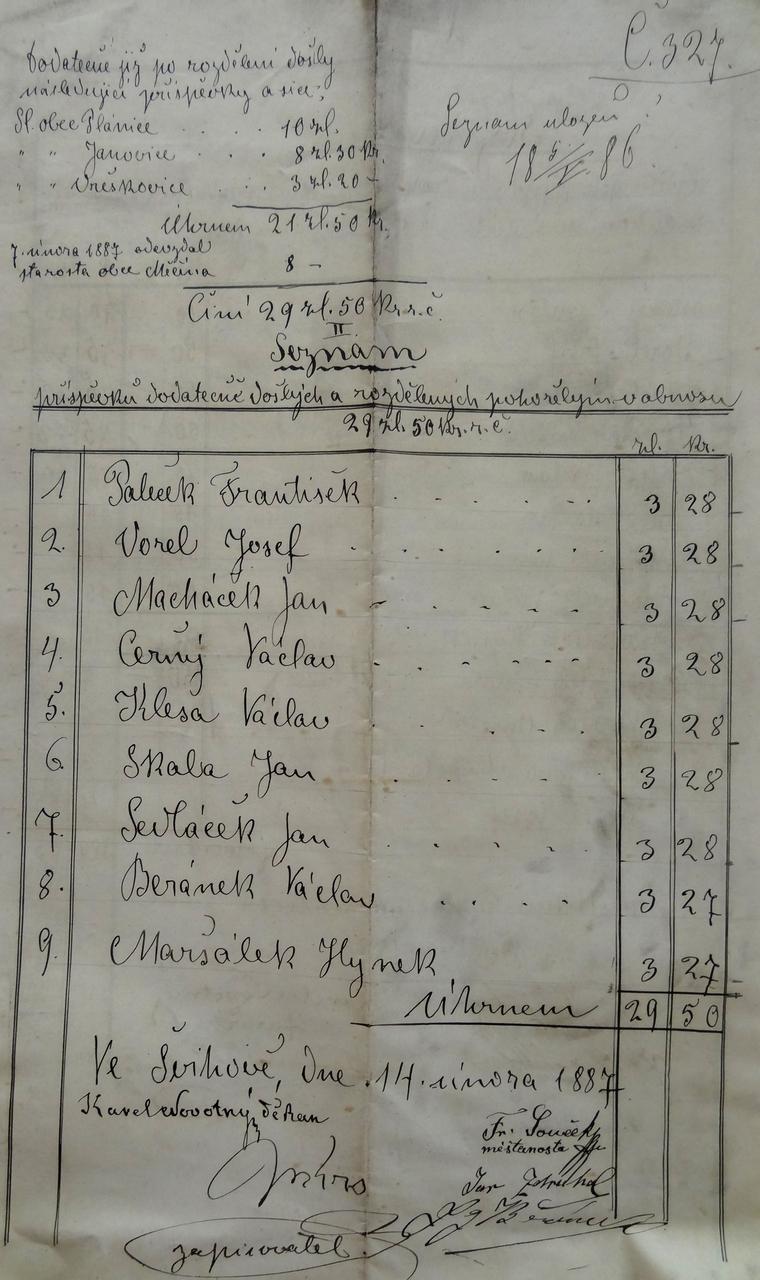 Č. 327.
Dodatečně již po rozdělení došly
následující příspěvky a sice:
Sl. obec Plánice . . . 10 zl.
" " Janovice . . . 8 zl. 30 kr.
" " Vřeskovice . . . 3 zl. 20 -
Úhrnem 21 zl. 50 kr.
7. února 1887 odevzdal
starosta obce Měčína 8 -
Činí 29 zl. 50 kr. r. č.
Seznam uložen!
18 5/V. 86.
II.
Seznam
příspěvků dodatečně došlých a rozdělených pohořelým v obnosu
29 zl. 50 kr. r. č.
zl. kr.
1 Paleček František . . . . . 3 28
2. Vorel Josef . . . . . . 3 28
3 Macháček Jan - . - - - 3 28
4. Černý Václav . . - - - - 3 28
5. Klesa Václav . . . . 3 28
6. Skala Jan . . . . 3 28
7. Sedláček Jan . . . . 3 28
8. Beránek Václav . . . . 3 27
9. Maršálek Hynek 3 27
Úhrnem 29 50
Ve Švihově, dne 14. února 1887
Karel Novotný, děkan
Fr. Souček
měšťanosta
Jan
zapisovatel.